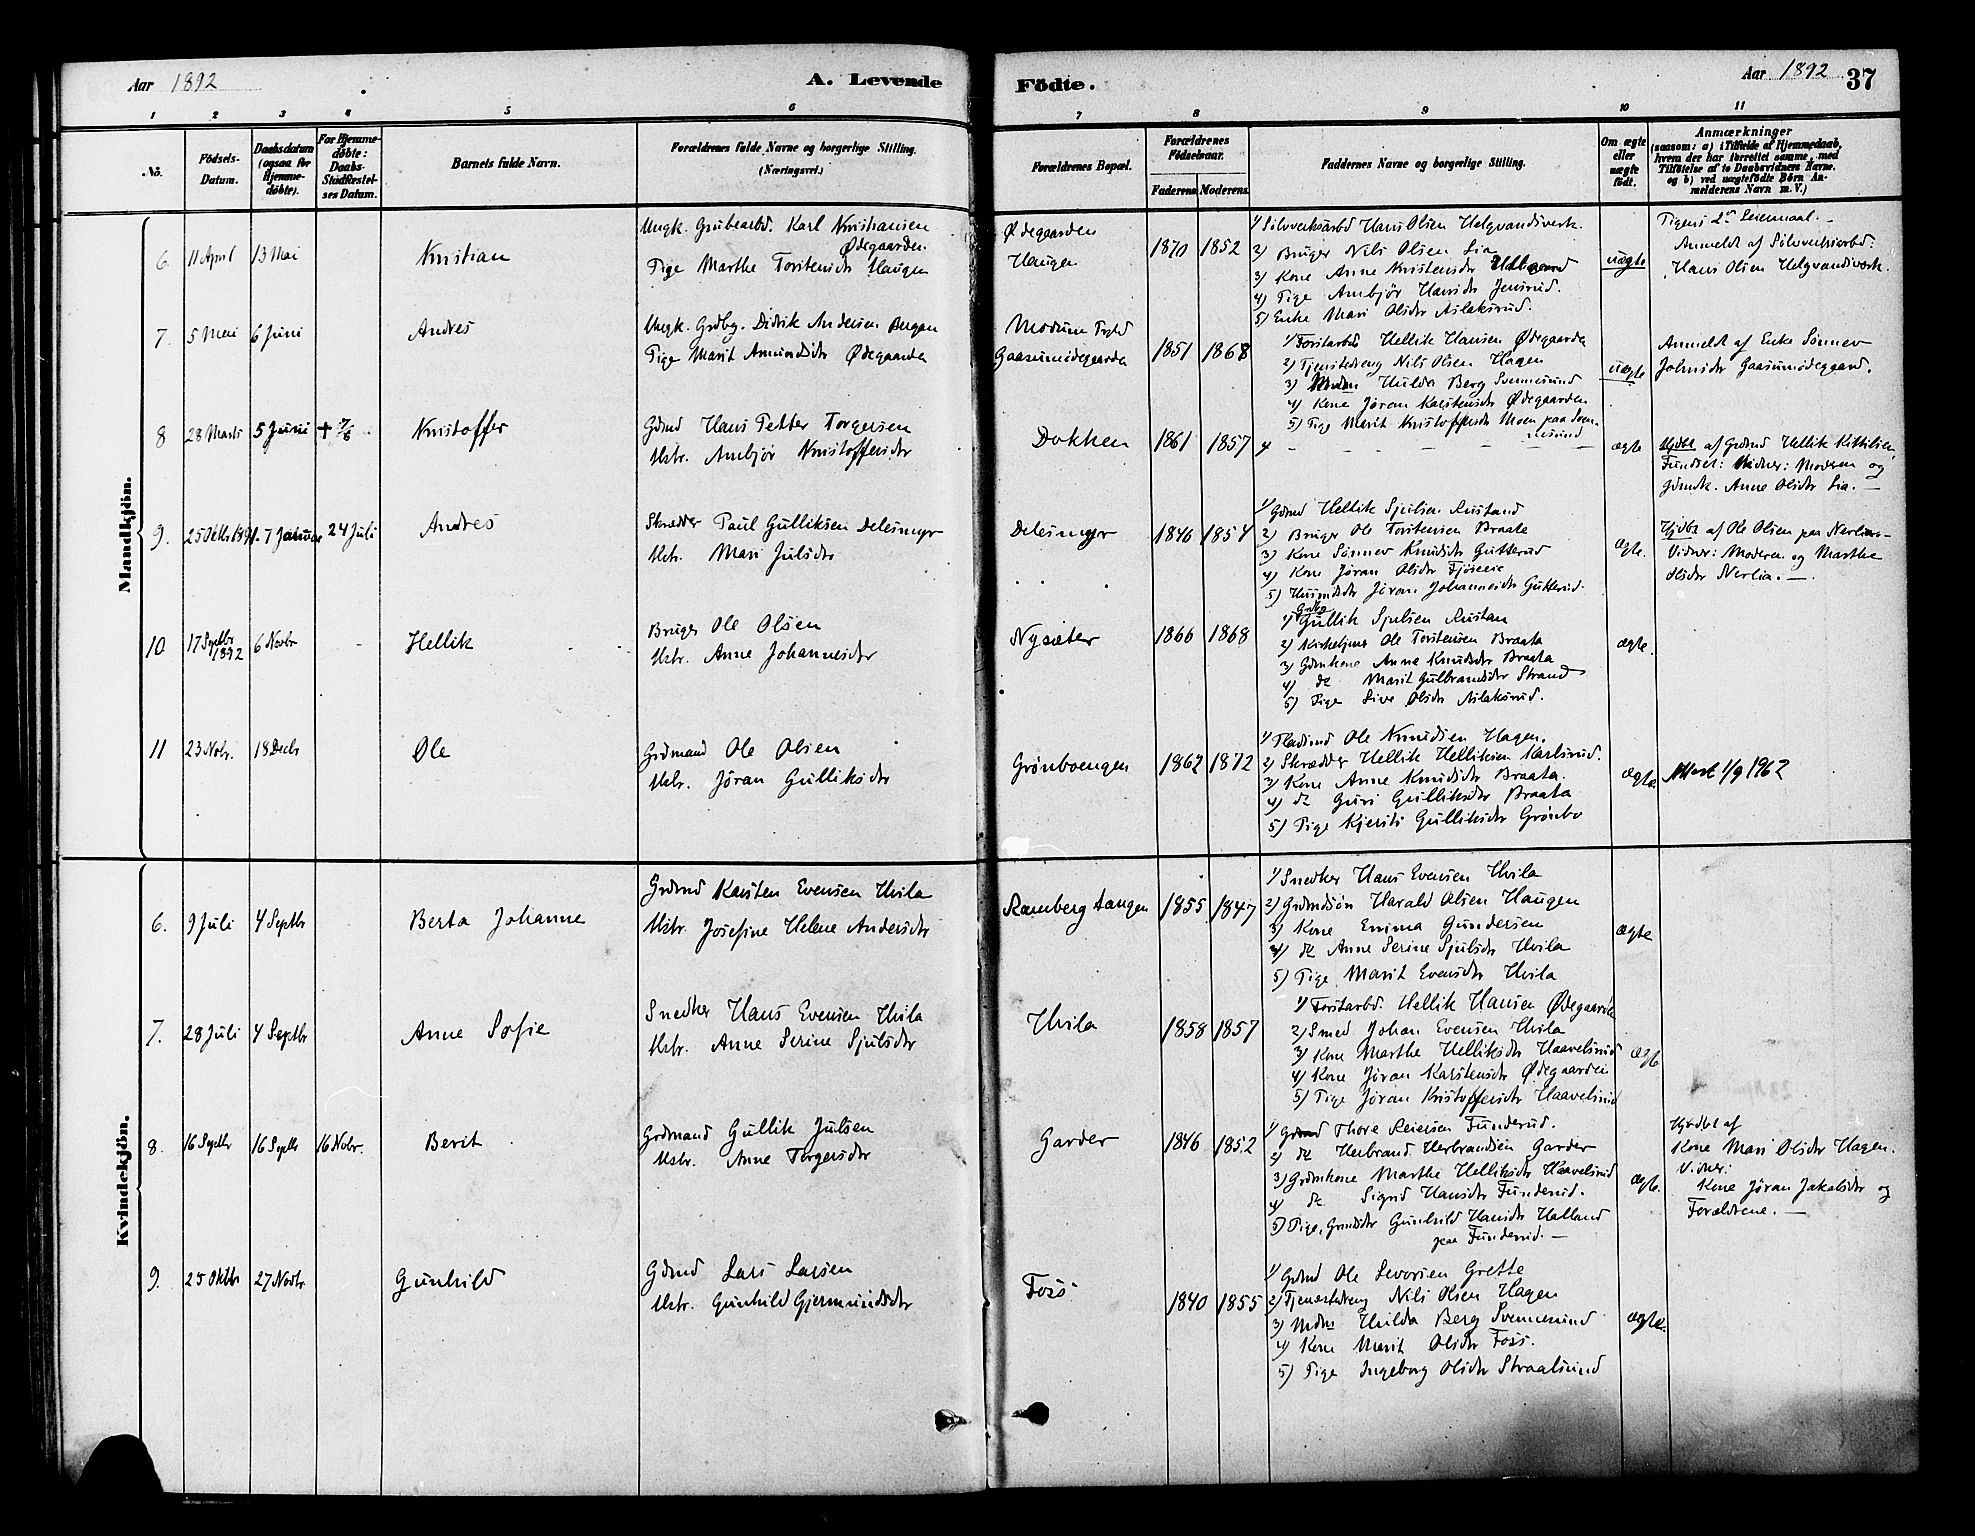 Aar 1892
A. Levende
Födte.
Aar 1892 37
1 2 3 4 5 6 7 8 9 10 11
No.
Födsels-Datum.
Daabsdatum (ogsaa for Hjemmedöbte).
For Hjemmedöbte: Daabs-Stadfæstelses Datum.
Barnets fulde Navn.
Forældrenes fulde Navne og borgerlige Stilling. (Næringsvei.)
Forældrenes Bopæl.
Forældrenes Födselsaar.
Faderens. Moderens.
Faddernes Navne og borgerlige Stilling.
Om ægte eller uægte födt.
Anmærkninger
(saasom: a) i Tilfælde af Hjemmedaab, hvem der har forrettet samme, med Tilföielse af to Daabsvidners Navne. og b) ved uægtefödte Börn Anmelderens Navn m. V.)
Mandkjön.
6. 11 April 13 Mai Kristian
Ungk. Grubearbd. Karl Kristiansen Ødegaarden
Pige Marthe Torstensdtr Haugen
Ødegaarden
Haugen
1870 1852
1) Sölvverksarbd Hans Olsen Helgvandsverk.
2) Bruger Nils Olsen Lia
3) Kone Anne Kristensdtr
4) Pige Anbjør Hansdtr Jensrud.
5) Enke Mari Olsdtr Aslaksrud.
uægte
Pigens 2det Leiermaal.
Anmeldt af Sölvverksarbd:
Hans Olsen Helgvandsverk.
7. 5 Mai 6 Juni Andres
Ungk. Grdbg. Didrik Andersen Bugan
Pige Marit Amundsdtr Ødegaarden
Modum Prgld
Gaasumødegaarden
1851 1868
1) Forstarbd Hellik Hansen Ødegaarden
2) Tjenestedreng Nils Olsen Hagen
3) Madm Hulda Berg Svennesund
4) Kone Jøran Karstensdtr Ødegaarden
5) Pige Marit Kristoffersdtr Moen paa Svennesund
uægte
Anmeldt af Enke Sønnev
Johnsdtr Gaasumødegaard.
8 28 Marts 5 Juni + 7/6 Kristoffer
Gdmd Hans Petter Torgersen
Hstr. Anbjør Kristoffersdtr
Dokken 1861 1857
ægte
Hjdbt af Grdmd Hellik Kittilsen
Fundset: Vidner: Moderen og
Gdmdk. Anne Olsdtr Lia. —
9. 25 Oktbr 1891. 7 Januar 24 Juli Andres
Skrædder Paul Gulliksen Delesmyr
Hstr. Mari Julsdtr
Delesmyr 1846 1854
1) Gdmd Hellik Sjulsen Rustand
2) Bruger Ole Torstensen Braate
3) Kone Sønnev Knudsdtr Gutterud
4) Kone Jøran Olsdtr Fjöseie
5) Husmdsdtr Jøran Johannesdtr Gutterud.
Ægte.
Hjdbt af Ole Olsen paa Nerlia
Vidner: Moderen og Marthe
Olsdtr Nerlia. —
10 17 Septbr 1892 6 Novbr Hellik
Bruger Ole Olsen
Hstr. Anne Johannesdtr
Nysæter 1866 1868
1) Gullik Sjulsen Rustan
2) Kirketjener Ole Torstensen Braata
3) Gdmkone Anne Knudsdtr Braata
4) do Marit Gulbrandsdtr Strand
5) Pige Live Olsdtr Aslaksrud.
ægte.
11 23 Nobr. 18 Decbr Ole
Grdmand Ole Olsen
Hstr. Jøran Gulliksdtr
Grönboengen 1862 1872
1) Pladsmd Ole Knudsen Hagen.
2) Skrædder Hellik Helliksen Karlsrud.
3) Kone Anne Knudsdtr Braata.
4) do Guri Gulliksdtr Braata
5) Pige Kjersti Gulliksdtr Grönbo
ægte.
Attest 1/9 1962
Kvindekjön.
6. 9 Juli 4 Septbr Berta Johanne
Grdmd Karsten Evensen Hvila
Hstr. Josefine Helene Andersdtr
Ramberg tangen 1855 1847
1) Snedker Hans Evensen Hvila
2) Grdmdsön Harald Olsen Haugen
3) Kone Emma Gundersen
4) do Anne Serine Sjulsdtr Hvila
5) Pige Marit Evensdtr Hvila
ægte
7. 28 Juli 4 Septbr Anne Sofie
Snedker Hans Evensen Hvila
Hstr. Anne Serine Sjulsdtr
Hvila 1858 1857
1) Forstarbd. Hellik Hansen Ødegaarden
2) Smed Johan Evensen Hvila
3) Kone Marthe Helliksdtr Haavelsrud
4) Kone Jøran Karstensdtr Ødegaarden
5) Pige Jøran Kristoffersdtr Haavelsrud
ægte
8. 16 Septbr 16 Septbr 16 Nobr. Berit
Grdmand Gullik Julsen
Hstr. Anne Torgersdtr
Garder 1846 1852
1) Grdmd Thore Reiersen Funderud.
2) do Herbrand Herbrandsen Garder
3) Grdmkone Marthe Helliksdtr Haavelsrud
4) do Sigrid Hansdtr Funderud.
5) Pige, Grmdsdtr Gunhild Hansdtr Halland
paa Funderud. —
ægte.
Hjmdbt af
Kone Mari Olsdtr Hagen.
Vidner:
Kone Jøran Jakobsdtr og
Forældrene. —
9. 25 Oktbr 27 Novbr Gunhild
Gdmd Lars Larsen
Hstr. Gunhild Gjermundsdtr
Foss 1840 1855
1) Grdmd Ole Sevorsen Grette
2) Tjenestedreng Nils Olsen Hagen
3) Mdm Hulda Berg Svennesund
4) Kone Marit Olsdtr Foss.
5) Pige Ingeborg Olsdtr Straalsund
ægte.